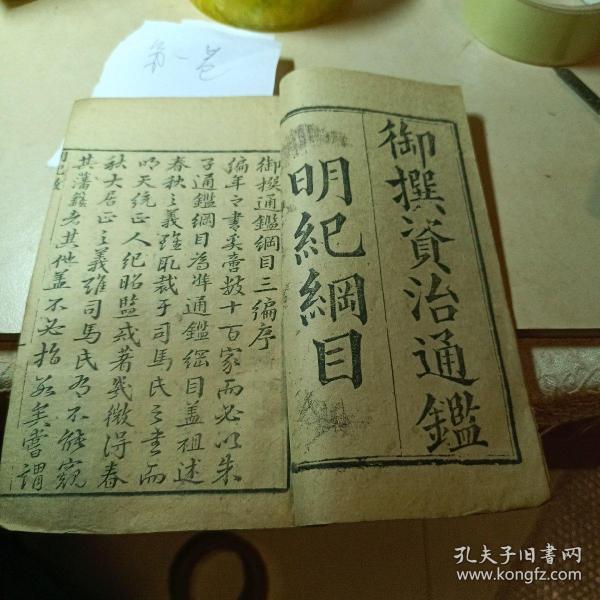 第一卷
御撰資治通鑑
明紀綱目
御撰通鑑綱目三編序
編年之書奚啻數十百家而必以朱
子通鑑綱目為準通鑑綱目蓋祖述
春秋之義雖取裁于司馬氏之書而
明天統正人紀昭監戒著幾微得春
秋大居正之義雖司馬氏有不能窺
其藩籬者其他蓋不必指數矣嘗謂
孔夫子旧书网
www.kongfz.com